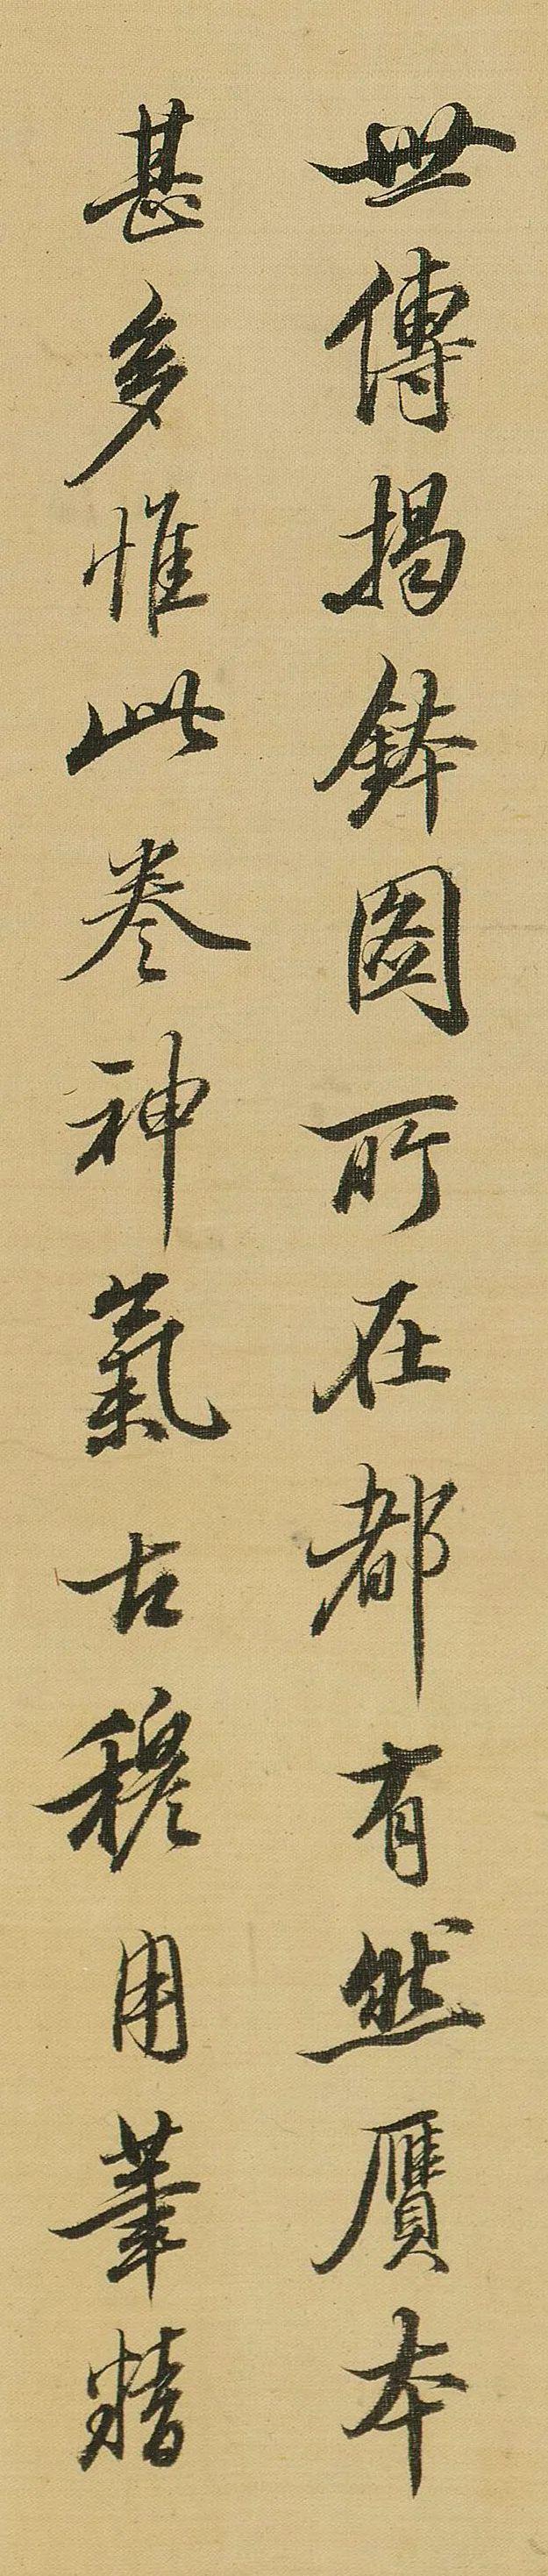 世傳揭鉢圖所在都有然贋本
甚多惟此卷神氣古穆用筆精